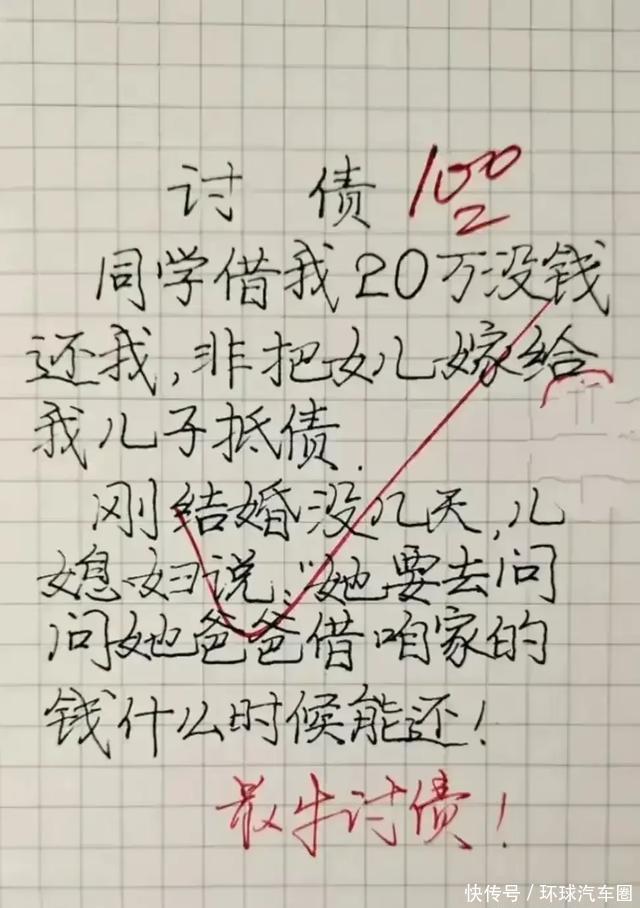 讨 债 100
同学借我20万没钱
还我,非把女儿嫁给
我儿子抵债.
刚结婚没几天,儿
媳妇说:"她要去问
问她爸爸借咱家的
钱什么时候能还!
最牛讨债!
快传号/环球汽车圈